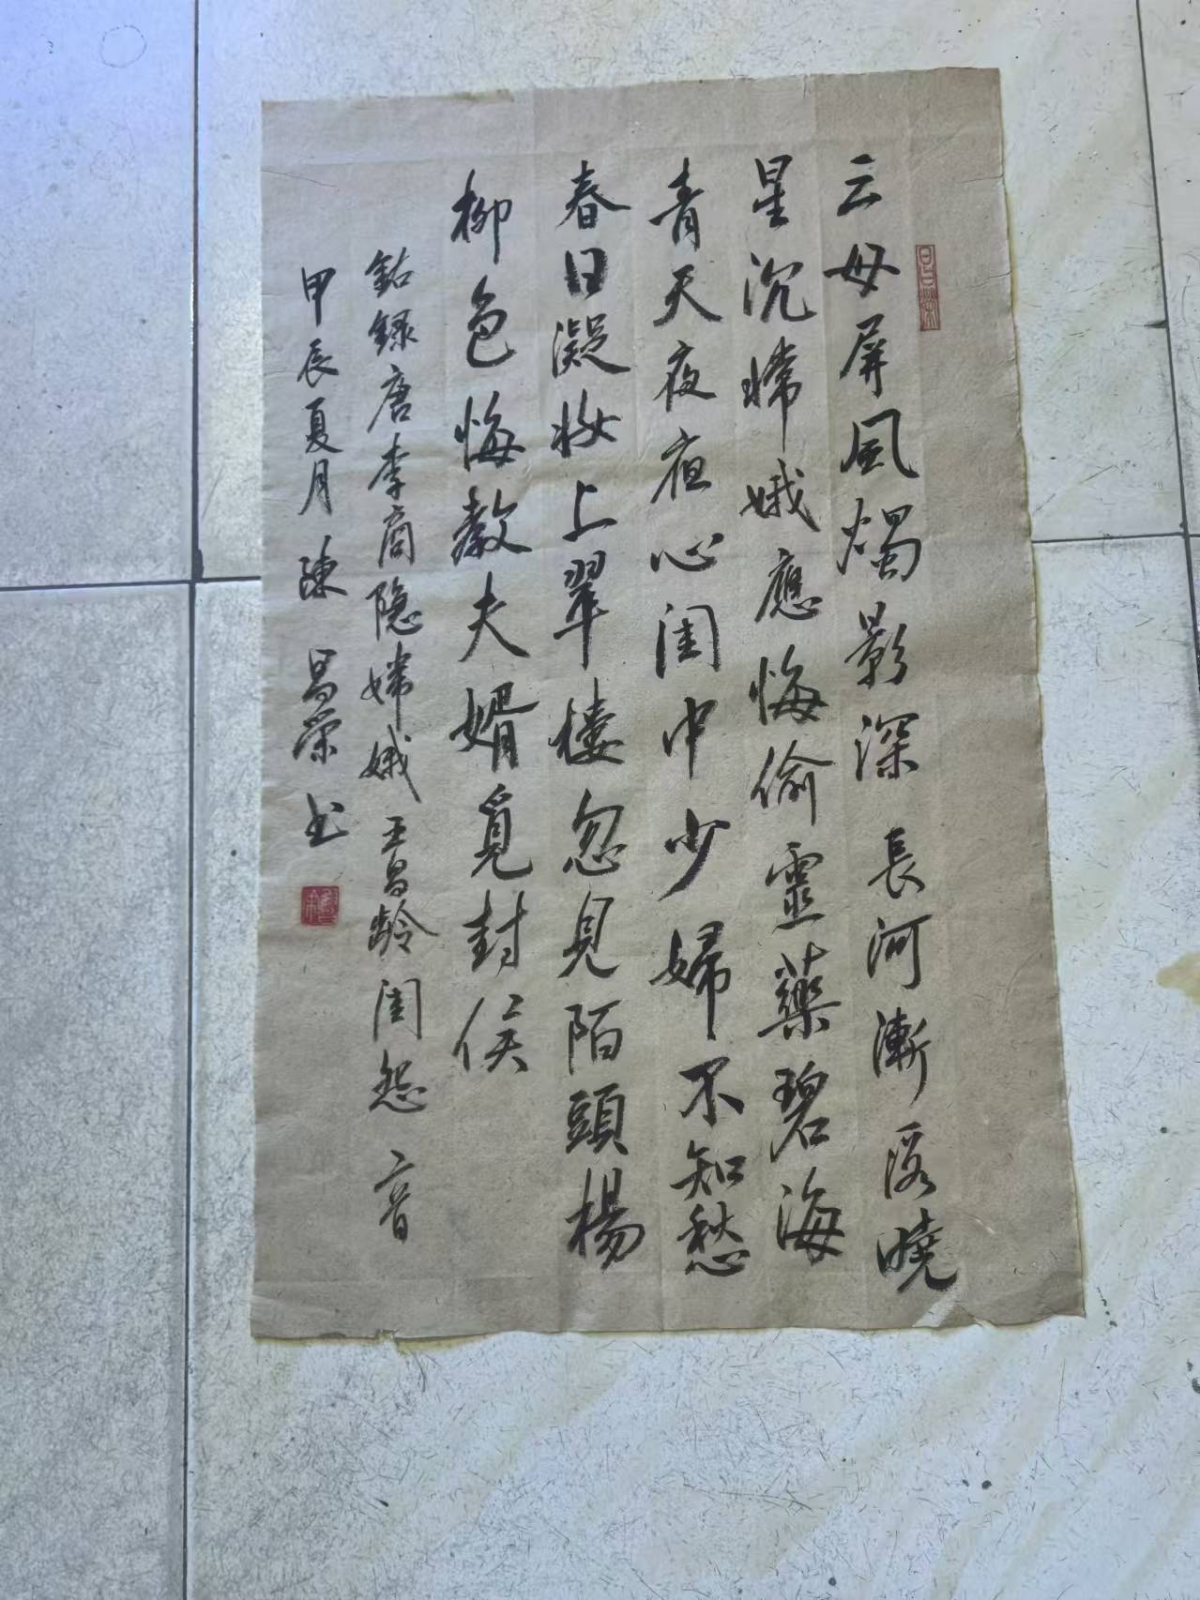 云母屏風燭影深長河漸落曉
星沉嫦娥應悔偷靈藥碧海
青天夜夜心闺中少婦不知愁
春日凝妝上翠楼忽見陌頭楊
柳色悔教夫婿覓封侯
鈷録唐李商隐嫦娥王昌龄闺怨二首
甲辰夏月陳昌荣书